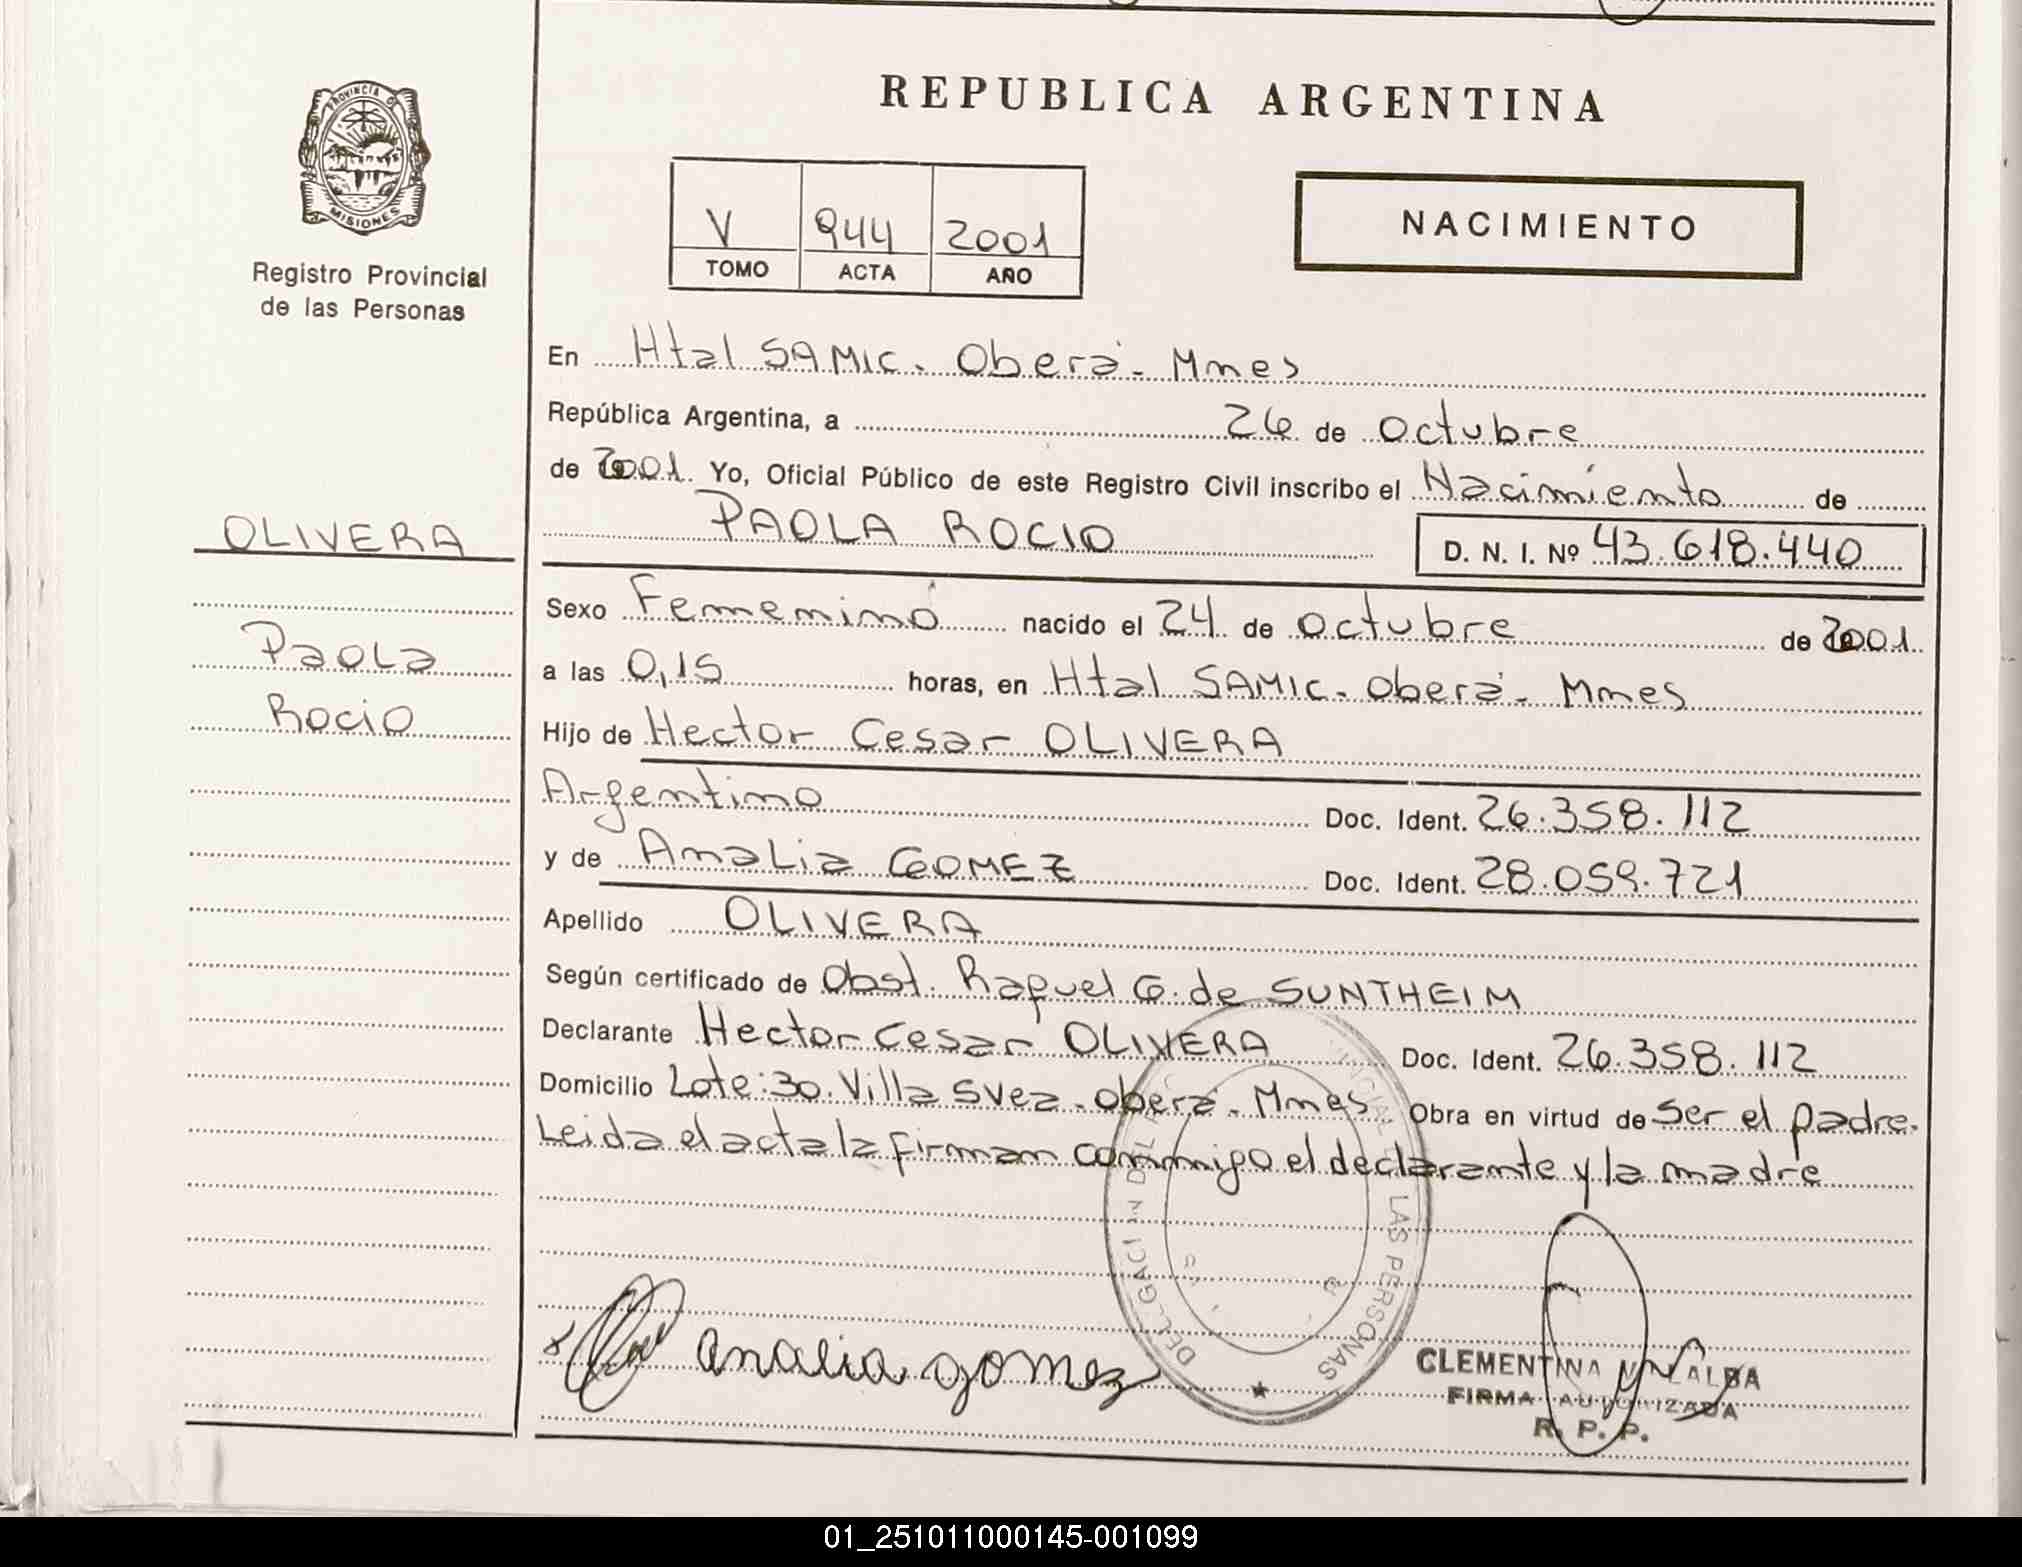 PROVINCIA D
MISIONES
Registro Provincial
de las Personas
OLIVERA
Paola
Rocio
REPUBLICA ARGENTINA
V 944 2001
TOMO ACTA AÑO
NACIMIENTO
En Htal SAMIC. Oberá - Mnes
República Argentina, a 26 de Octubre
de 2001. Yo, Oficial Público de este Registro Civil inscribo el Nacimiento de
PAOLA ROCIO D. N. I. Nº 43.618.440
Sexo Femenino nacido el 24 de Octubre de 2001
a las 0,15 horas, en Htal SAMIC. Oberá - Mnes
Hijo de Hector Cesar OLIVERA
Argentino Doc. Ident. 26.358.112
y de Analia GOMEZ Doc. Ident. 28.059.721
Apellido OLIVERA
Según certificado de Obst. Raquel G. de SUNTHEIM
Declarante Hector Cesar OLIVERA Doc. Ident. 26.358.112
Domicilio Lote: 30. Villa Svea - Oberá - Mnes Obra en virtud de Ser el padre.
Leida el acta la firman conmigo el declarante y la madre
DELEGACION DEL LAS PERSONAS
analia gomez
CLEMENTINA VILLALBA
FIRMA AUTORIZADA
R. P. P.
01_251011000145-001099